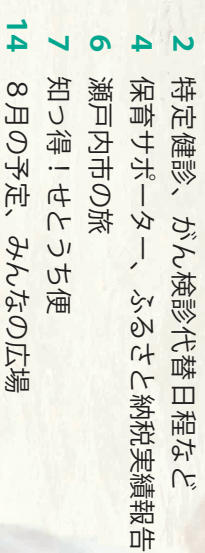 2 特定健診、がん検診代替日程など
4 保育サポーター、ふるさと納税実績報告
6 瀬戸内市の旅
7 知っ得！せとうち便
14 8月の予定、みんなの広場